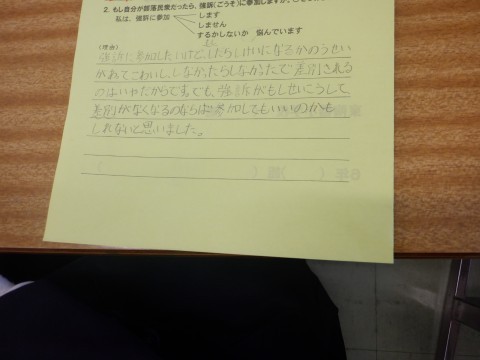 2. もし自分が部落民衆だったら、強訴(ごうそ)に参加しますか。
私は、強訴に参加 します
しません
するかしないか 悩んでいます
(理由)
強訴に参加したいけど、したらしけいになるかのうせい
があってこわいし、しなかったらしなかったで差別される
のはいやだからです。でも、強訴がもしせいこうして、
差別がなくなるのならば参加してもいいのかも
しれないと思いました。